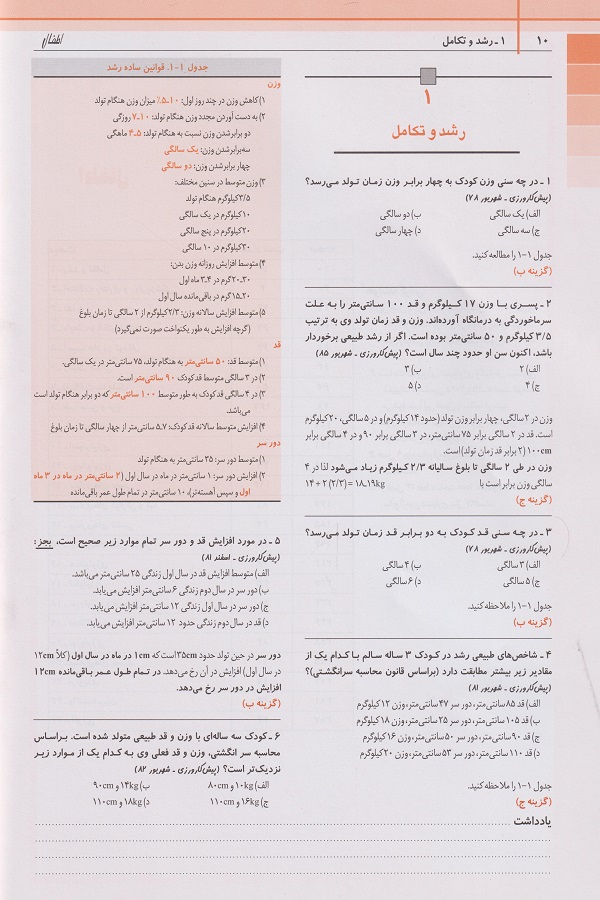 ۱۰
۱ ـ رشد و تکامل
اطفال
۱
رشد و تکامل
۱ ـ در چه سنی وزن کودک به چهار برابر وزن زمان تولد می‌رسد؟
(پیش‌کارورزی ـ شهریور ۷۸)
الف) یک سالگی ب) دو سالگی
ج) سه سالگی د) چهار سالگی
جدول ۱-۱ را مطالعه کنید.
(گزینه ب)
۲ ـ پسری با وزن ۱۷ کیلوگرم و قد ۱۰۰ سانتی‌متر را به علت
سرماخوردگی به درمانگاه آورده‌اند. وزن و قد زمان تولد وی به ترتیب
۳/۵ کیلوگرم و ۵۰ سانتی‌متر بوده است. اگر از رشد طبیعی برخوردار
باشد، اکنون سن او حدود چند سال است؟ (پیش‌کارورزی ـ شهریور ۸۵)
الف) ۲ ب) ۳
ج) ۴ د) ۵
وزن در ۲ سالگی، چهار برابر وزن تولد (حدود ۱۴ کیلوگرم) و در ۵ سالگی، ۲۰ کیلوگرم
است. قد در ۲ سالگی برابر ۷۵ سانتی‌متر، در ۳ سالگی برابر ۹۰ و در ۴ سالگی برابر
۱۰۰cm (۲ برابر قد زمان تولد) است.
وزن در طی ۲ سالگی تا بلوغ سالیانه ۲/۳ کیلوگرم زیاد می‌شود لذا در ۴
سالگی وزن برابر است با ۱۴ + ۲ (۲/۳) = ۱۸ـ۱۹kg
(گزینه ج)
۳ ـ در چه سنی قد کودک به دو برابر قد زمان تولد می‌رسد؟
(پیش‌کارورزی ـ شهریور ۷۸)
الف) ۳ سالگی ب) ۴ سالگی
ج) ۵ سالگی د) ۶ سالگی
جدول ۱-۱ را ملاحظه کنید.
(گزینه ب)
۴ ـ شاخص‌های طبیعی رشد در کودک ۳ ساله سالم با کدام یک از
مقادیر زیر بیشتر مطابقت دارد (براساس قانون محاسبه سرانگشتی)؟
(پیش‌کارورزی ـ شهریور ۸۱)
الف) قد ۸۵ سانتی‌متر، دور سر ۴۷ سانتی‌متر، وزن ۱۲ کیلوگرم
ب) قد ۱۰۵ سانتی‌متر، دور سر ۲۵ سانتی‌متر، وزن ۱۸ کیلوگرم
ج) قد ۹۰ سانتی‌متر، دور سر ۵۰ سانتی‌متر، وزن ۱۶ کیلوگرم
د) قد ۱۱۰ سانتی‌متر، دور سر ۵۳ سانتی‌متر، وزن ۲۰ کیلوگرم
جدول ۱-۱ را ملاحظه کنید.
(گزینه ج)
جدول ۱-۱. قوانین ساده رشد
وزن
۱) کاهش وزن در چند روز اول: ۱۰ـ۵٪ میزان وزن هنگام تولد
۲) به دست آوردن مجدد وزن هنگام تولد: ۱۰ـ۷ روزگی
دو برابرشدن وزن نسبت به هنگام تولد: ۵ـ۴ ماهگی
سه‌برابرشدن وزن: یک سالگی
چهار برابرشدن وزن: دو سالگی
۳) وزن متوسط در سنین مختلف:
۳/۵کیلوگرم هنگام تولد
۱۰کیلوگرم در یک سالگی
۲۰کیلوگرم در پنج سالگی
۳۰کیلوگرم در ۱۰ سالگی
۴) متوسط افزایش روزانه وزن بدن:
۳۰ـ۲۰گرم در ۴ـ۳ ماه اول
۲۰ـ۱۵گرم در باقی‌مانده سال اول
۵) متوسط افزایش سالانه وزن: ۲/۳کیلوگرم از ۲ سالگی تا زمان بلوغ
(گرچه افزایش به طور یکنواخت صورت نمی‌گیرد)
قد
۱) متوسط قد: ۵۰ سانتی‌متر به هنگام تولد، ۷۵ سانتی‌متر در یک سالگی.
۲) در ۳ سالگی متوسط قد کودک ۹۰ سانتی‌متر است.
۳) در ۴ سالگی قد کودک به طور متوسط ۱۰۰ سانتی‌متر که دو برابر هنگام تولد است
می‌باشد.
۴) افزایش متوسط سالانه قد کودک: ۷ـ۵ سانتی‌متر از چهار سالگی تا زمان بلوغ
دور سر
۱) متوسط دور سر: ۳۵ سانتی‌متر به هنگام تولد
۲) افزایش دور سر: ۱ سانتی‌متر در ماه در سال اول (۲ سانتی‌متر در ماه در ۳ ماه
اول و سپس آهسته‌تر)، ۱۰ سانتی‌متر در تمام طول عمر باقی‌مانده
۵ ـ در مورد افزایش قد و دور سر تمام موارد زیر صحیح است، بجز:
(پیش‌کارورزی ـ اسفند ۸۱)
الف) متوسط افزایش قد در سال اول زندگی ۲۵ سانتی‌متر می‌باشد.
ب) دور سر در سال دوم زندگی ۶ سانتی‌متر افزایش می‌یابد.
ج) دور سر در سال اول زندگی ۱۲ سانتی‌متر افزایش می‌یابد.
د) قد در سال دوم زندگی حدود ۱۲ سانتی‌متر افزایش می‌یابد.
دور سر در حین تولد حدود ۳۵cm است که ۱cm در ماه در سال اول (کلاً ۱۲cm
در سال اول) افزایش در آن رخ می‌دهد. در تمام طول عمر باقی‌مانده ۱۲cm
افزایش در دور سر رخ می‌دهد.
(گزینه ب)
۶ ـ کودک سه ساله‌ای با وزن و قد طبیعی متولد شده است. براساس
محاسبه سر انگشتی، وزن و قد فعلی وی به کدام یک از موارد زیر
نزدیک‌تر است؟ (پیش‌کارورزی ـ شهریور ۸۲)
الف) ۱۰kg و ۸۰cm ب) ۱۴kg و ۹۰cm
ج) ۱۶kg و ۱۱۰cm د) ۱۸kg و ۱۱۰cm
یادداشت